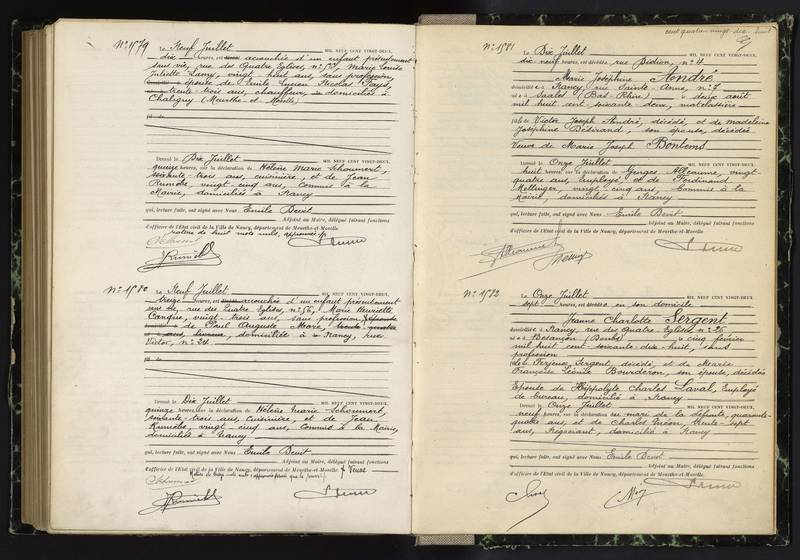 N° 1579 Le Neuf Juillet MIL NEUF CENT VINGT-DEUX,
dix heures, est accouchée d'un enfant présentement
sans vie, rue des Quatre Eglises, n° 50, Marie Louise
Juliette Lamy, vingt huit ans, sans profession,
épouse de Emile Lucien Nicolas
trente trois ans, chauffeur, domiciliés à
Chaligny (Meurthe-et-Moselle)
fil de
Dressé le Dix Juillet MIL NEUF CENT VINGT-DEUX,
quinze heures, sur la déclaration de Hélène Marie Schonnert,
soixante-trois ans, cuisinière, et de Jean
vingt-cinq ans, Commis à la
Mairie, domiciliés à Nancy
qui, lecture faite, ont signé avec Nous Emile Benit
Adjoint au Maire, délégué faisant fonctions
d'officier de l'Etat civil de la Ville de Nancy, département de Meurthe-et-Moselle.
de huit mots nuls, approuvée
N° 1580 Le Neuf Juillet MIL NEUF CENT VINGT-DEUX,
treize heures, est accouchée d'un enfant présentement
sans vie, rue des Quatre Eglises, n° 56, Marie Henriette
vingt trois ans, sans profession,
de Paul Auguste
domiciliée à Nancy, rue
Victor, n° 24
Dressé le Dix Juillet MIL NEUF CENT VINGT-DEUX,
quinze heures, sur la déclaration de Hélène Marie Schonnert,
soixante-trois ans, Cuisinière, et de Jean
vingt cinq ans, Commis à la Mairie,
domiciliés à Nancy
qui, lecture faite, ont signé avec Nous Emile Benit
Adjoint au Maire, délégué faisant fonctions
d'officier de l'Etat civil de la Ville de Nancy, département de Meurthe-et-Moselle. Veuve
cent quatre-vingt-dix-huit
N° 1581 Le Dix Juillet MIL NEUF CENT VINGT-DEUX,
dix neuf heures, est décédée, rue Didion, n° 4
Marie Joséphine André
domiciliée à Nancy, rue Sainte-Anne, n° 7
née à Saales (Bas-Rhin) le douze août
mil huit cent soixante deux, matelassière
fille de Victor Joseph André, décédé, et de Madeleine
Joséphine son épouse, décédée
Veuve de Marie Joseph Bontems
Dressé le Onze Juillet MIL NEUF CENT VINGT-DEUX,
huit heures, sur la déclaration de Georges vingt-
quatre ans, Employé, et de Ferdinand
Mellinger, vingt cinq ans, Commis à la
Mairie, domiciliés à Nancy
qui, lecture faite, ont signé avec Nous Emile Benit
Adjoint au Maire, délégué faisant fonctions
d'officier de l'Etat civil de la Ville de Nancy, département de Meurthe-et-Moselle.
N° 1582 Le Onze Juillet MIL NEUF CENT VINGT-DEUX,
sept heures, est décédée en son domicile
Jeanne Charlotte Sergent
domiciliée à Nancy, rue des Quatre-Eglises, n° 26
née à Besançon (Doubs) le cinq février
mil huit cent soixante-dix-huit, sans
profession
fille de Sergent, décédé, et de Marie
Françoise Léonile Bourderon, son épouse, décédée
Epouse de Hippolyte Charles Laval, Employé
de bureau, domicilié à Nancy
Dressé le Onze Juillet MIL NEUF CENT VINGT-DEUX,
neuf heures, sur la déclaration du mari de la défunte, quarante-
quatre ans, et de Charles trente-sept
ans, Négociant, domicilié à Nancy
qui, lecture faite, ont signé avec Nous Emile Benit
Adjoint au Maire, délégué faisant fonctions
d'officier de l'Etat civil de la Ville de Nancy, département de Meurthe-et-Moselle.